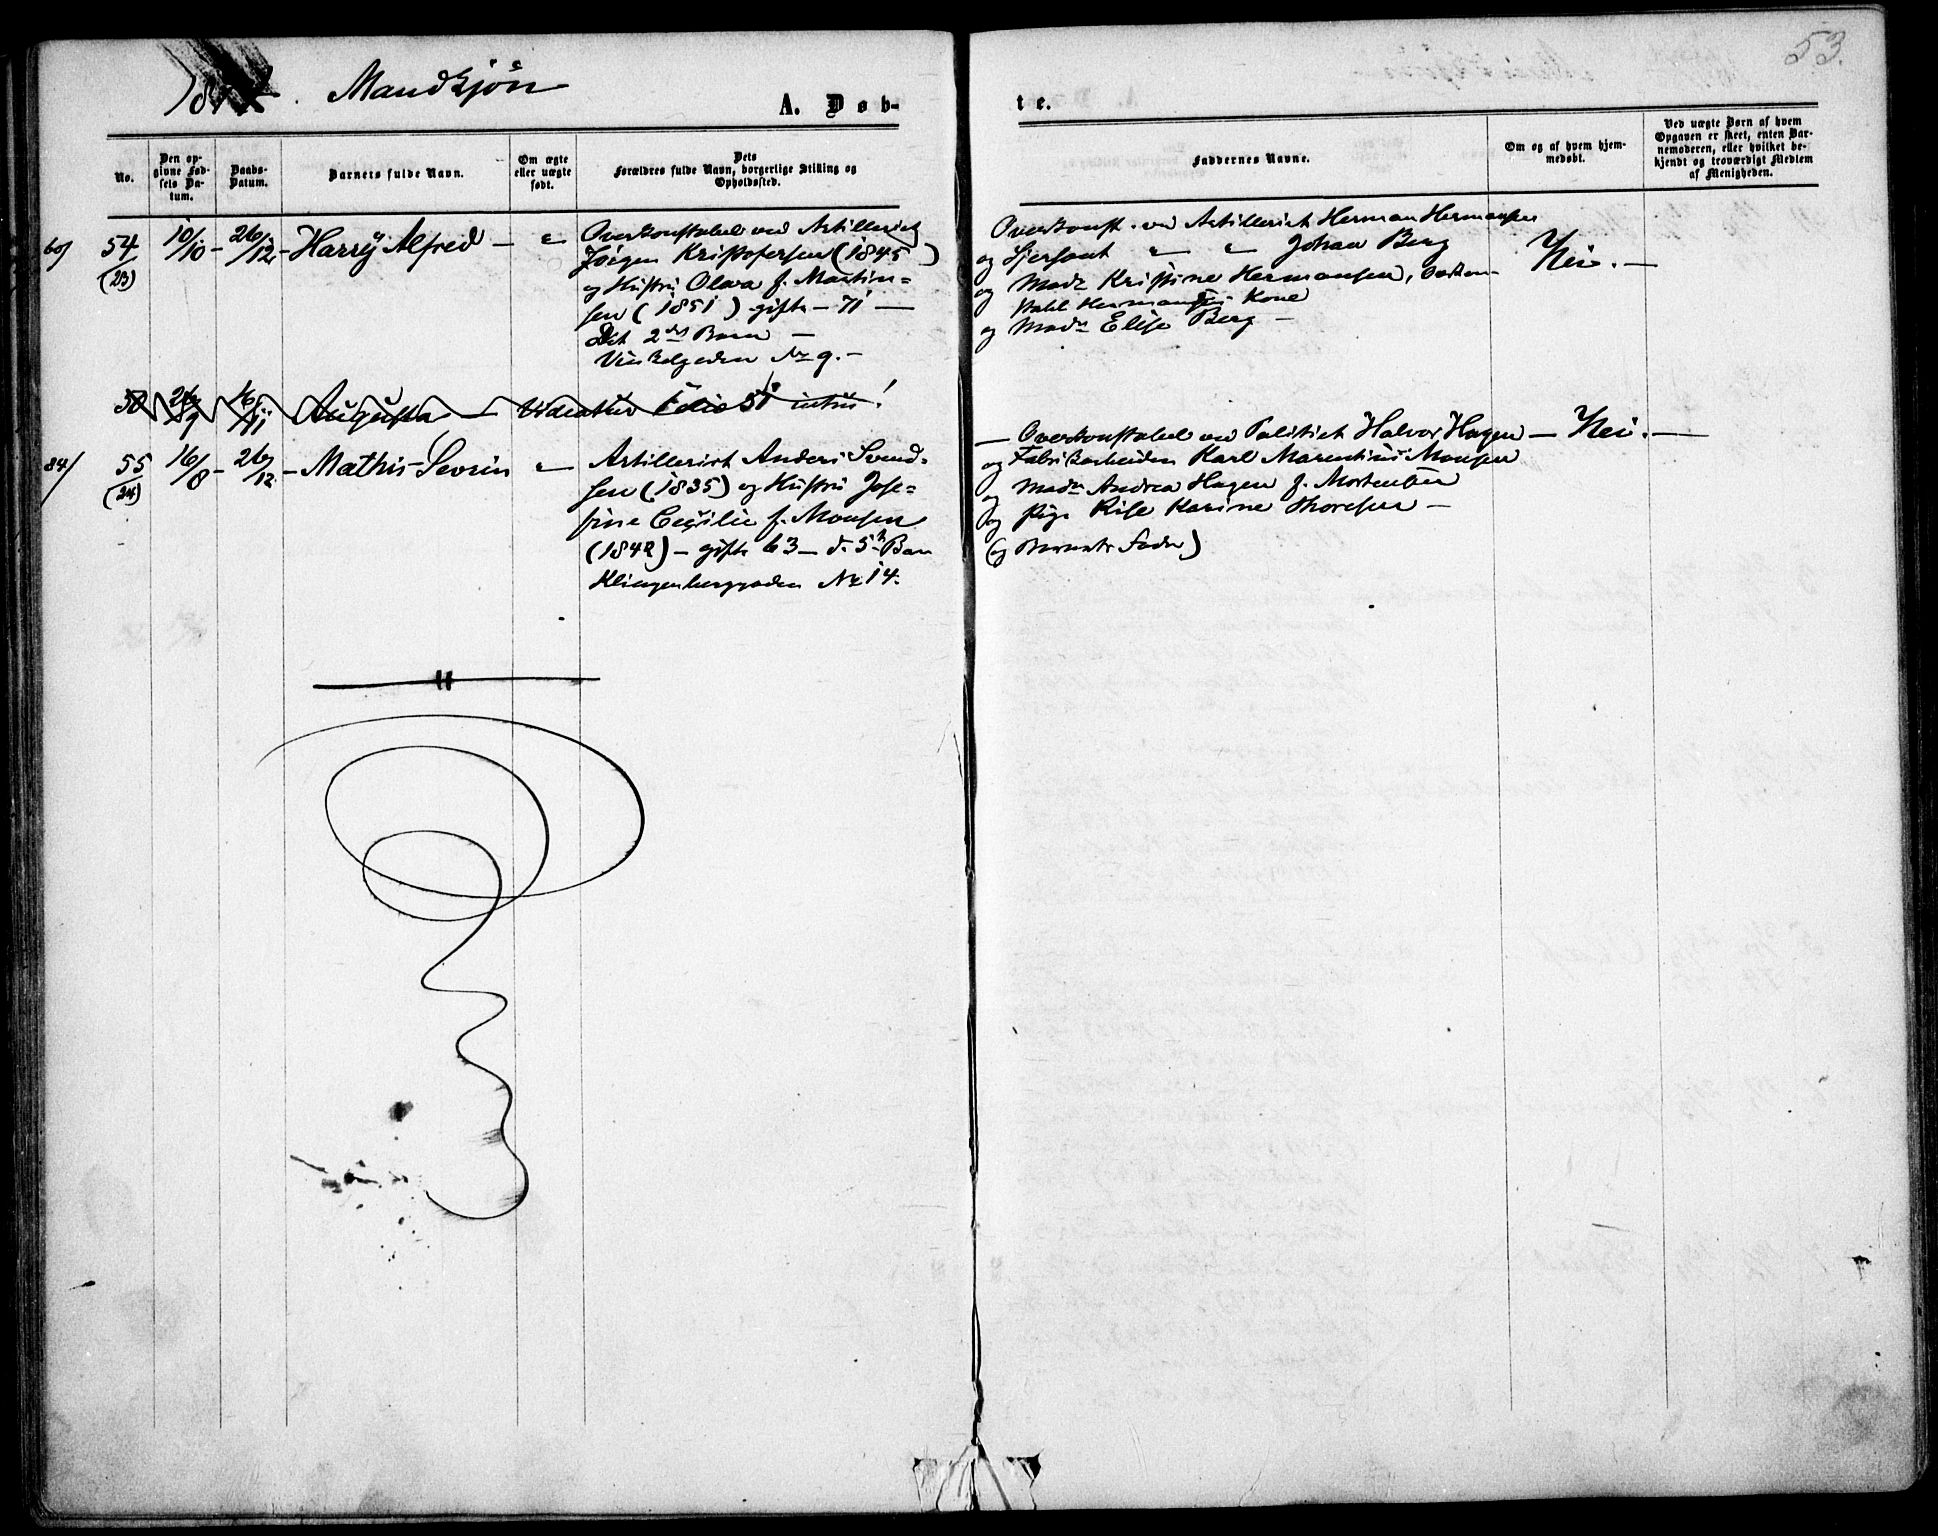 53.
Mandkjön
A. Døb-
te.
No.
Den op-
givne Fød-
sels Da-
tum.
Daabs-
Datum.
Barnets fulde Navn.
Om ægte
eller uægte
født.
Dets
Forældres fulde Navn, borgerlige Stilling og
Opholdssted.
Faddernes Navne.
Om og af hvem hjem-
medøbt.
Ved uægte Børn af hvem
Opgaven er skeet, enten Bar-
nemoderen, eller hvilket be-
kjendt og troværdigt Medlem
af Menigheden.
60/ 54 10/10 - 26/12 - Harry Alfred -
(23)
Overkonstabel ved Artilleriet
Jörgen Kristofersen (1845)
og Hustru Olava f. Martin-
sen (1851) gifte - 71 -
Det 2det Barn -
Vinkelgaden No 9. -
Overkonst. ved Artilleriet Herman Hermansen
og Sjersant " " Johan Berg
og Mad. Kristine Hermansen,
Hermansens Kone
og Mad. Elise Berg -
Nei. -
26/9 16/11 Augusta - Videatur Folio 51 intus!
84/ 55 16/8 - 26/12 - Mathis Sevrin
(24)
Artillerist Anders Svend-
sen (1835) og Hustru Jose-
fine Cecilie f. Monsen
(1842) - gifte 63 - d. 5te Barn
Klingenberggaden No 14.
- Overkonstabel ved Politiet Halvor Hagen - Nei. -
og Fabrikarbeider Karl Marentius Monsen
og Mad. Andrea Hagen f. Mortensen
og Pige Karine Thoresen -
(og Barnets Fader)